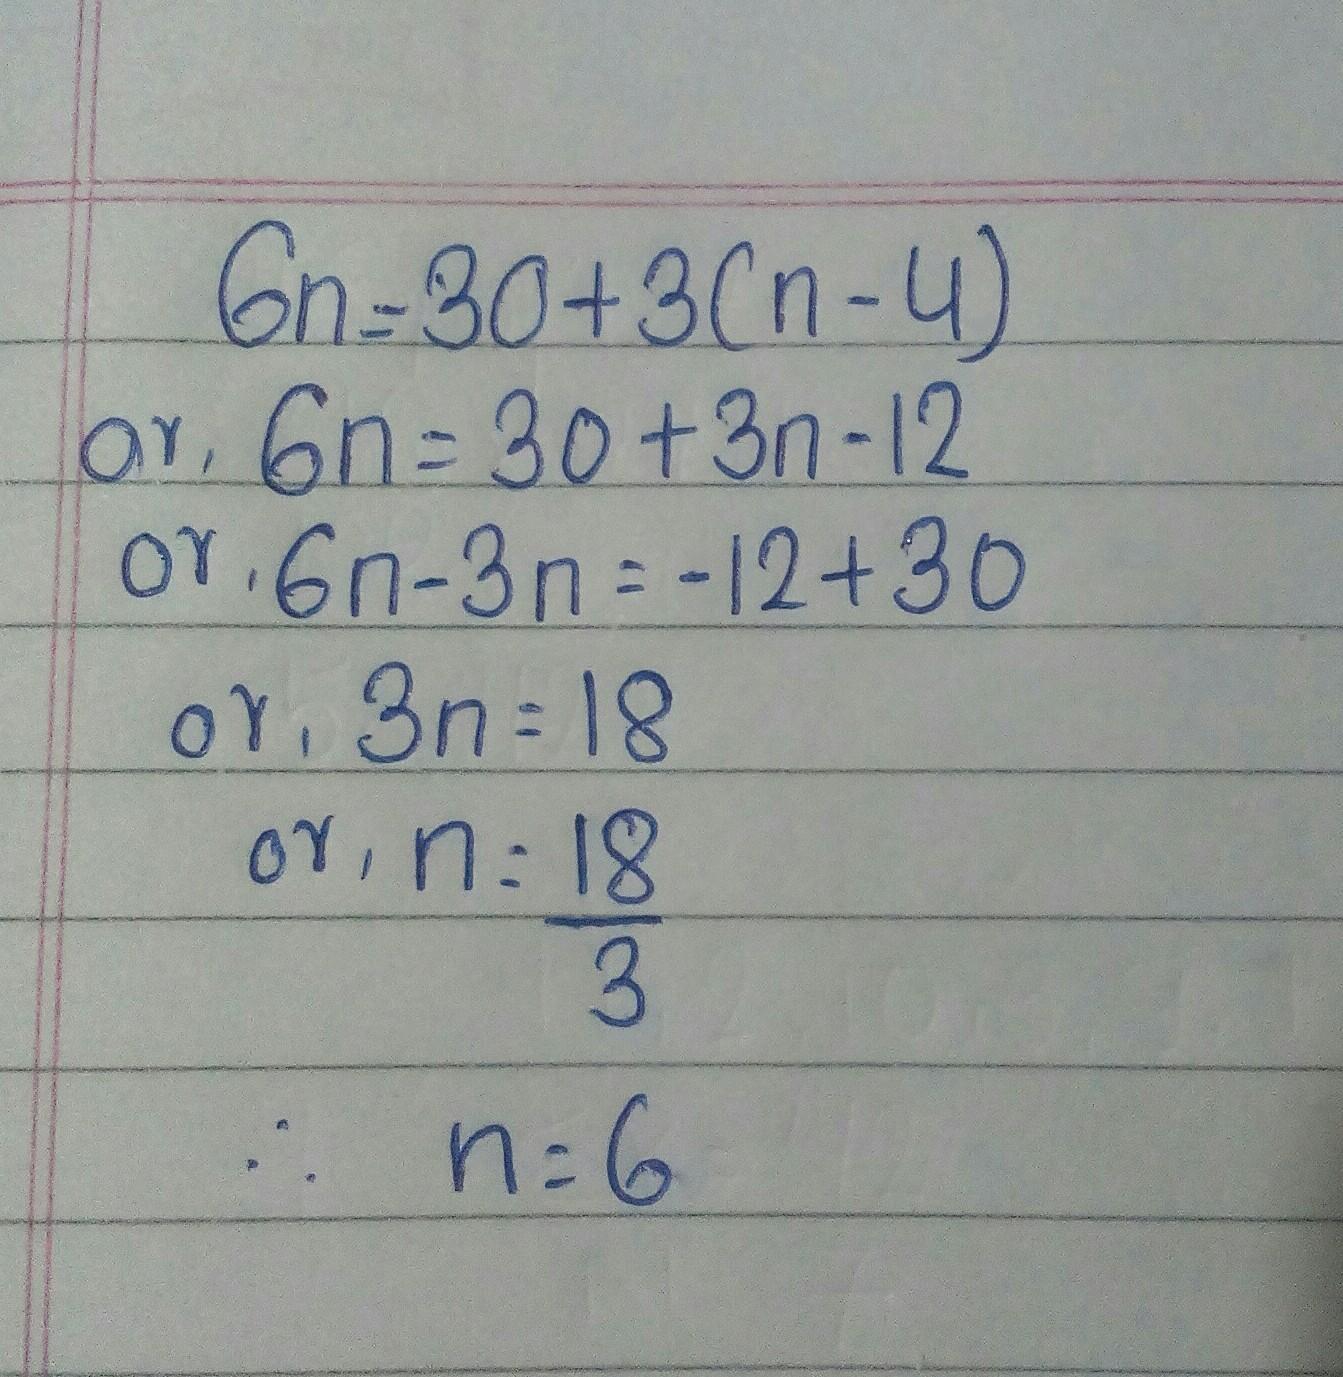 6n=30+3(n-4)
or, 6n=30+3n-12
or, 6n-3n=-12+30
or, 3n=18
or, n=18
3
∴ n=6